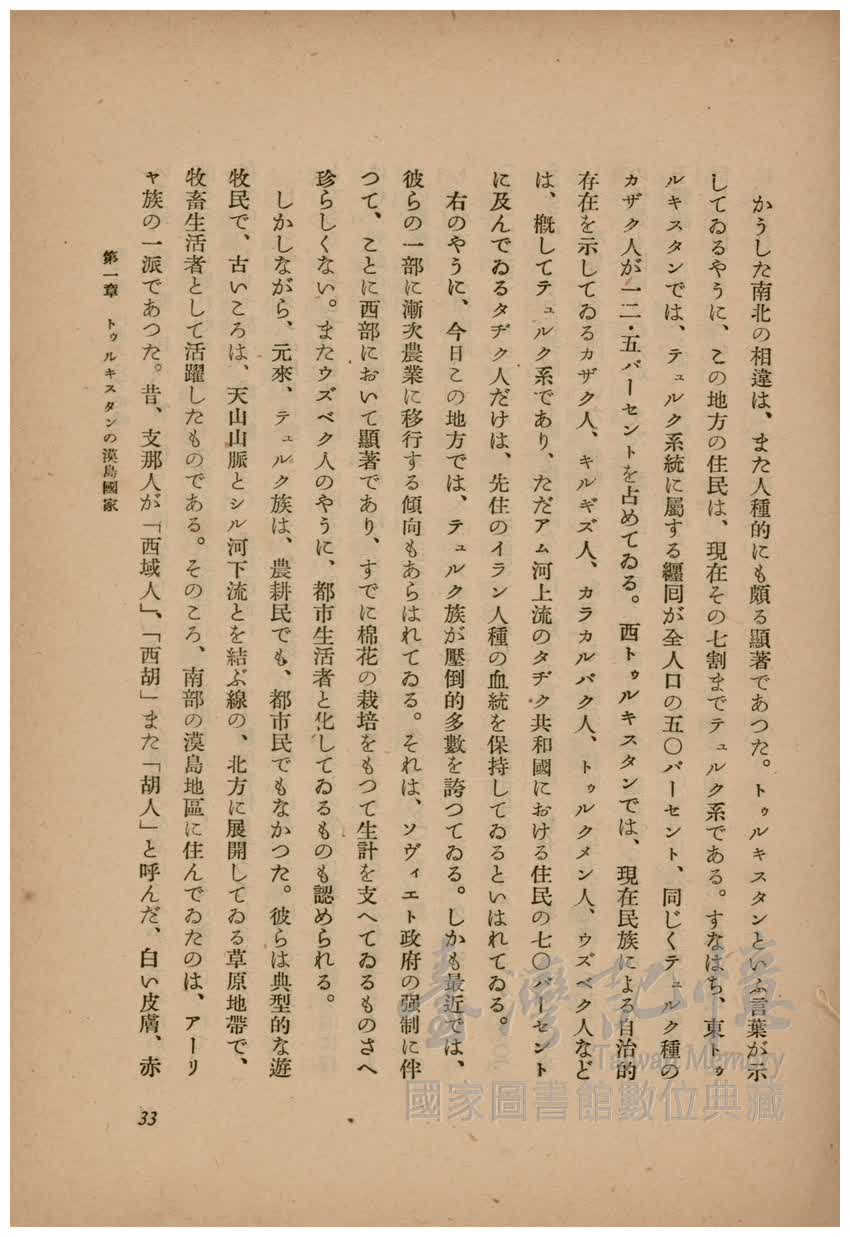 かうした南北の相違は、また人種的にも頗る顯著であつた。トゥルキスタンといふ言葉が示
してゐるやうに、この地方の住民は、現在その七割までテュルク系である。すなはち、東トゥ
ルキスタンでは、テュルク系統に屬する纒囘が全人口の五〇パーセント、同じくテュルク種の
カザク人が一二・五パーセントを占めてゐる。西トゥルキスタンでは、現在民族による自治的
存在を示してゐるカザク人、キルギズ人、カラカルパク人、トゥルクメン人、ウズベク人など
は、槪してテュルク系であり、ただアム河上流のタヂク共和國における住民の七〇パーセント
に及んでゐるタヂク人だけは、先住のイラン人種の血統を保持してゐるといはれてゐる。
右のやうに、今日この地方では、テュルク族が壓倒的多數を誇つてゐる。しかも最近では、
彼らの一部に漸次農業に移行する傾向もあらはれてゐる。それは、ソヴィエト政府の强制に伴
つて、ことに西部において顯著であり、すでに棉花の栽培をもつて生計を支へてゐるものさへ
珍らしくない。またウズベク人のやうに、都市生活者と化してゐるものも認められる。
しかしながら、元來、テュルク族は、農耕民でも、都市民でもなかつた。彼らは典型的な遊
牧民で、古いころは、天山山脈とシル河下流とを結ぶ線の、北方に展開してゐる草原地帶で、
牧畜生活者として活躍したものである。そのころ、南部の漠島地區に住んでゐたのは、アーリ
ヤ族の一派であつた。昔、支那人が「西域人」、「西胡」また「胡人」と呼んだ、白い皮膚、赤
第一章 トゥルキスタンの漠島國家
33
臺灣記憶
Taiwan Memory
國家圖書館數位典藏